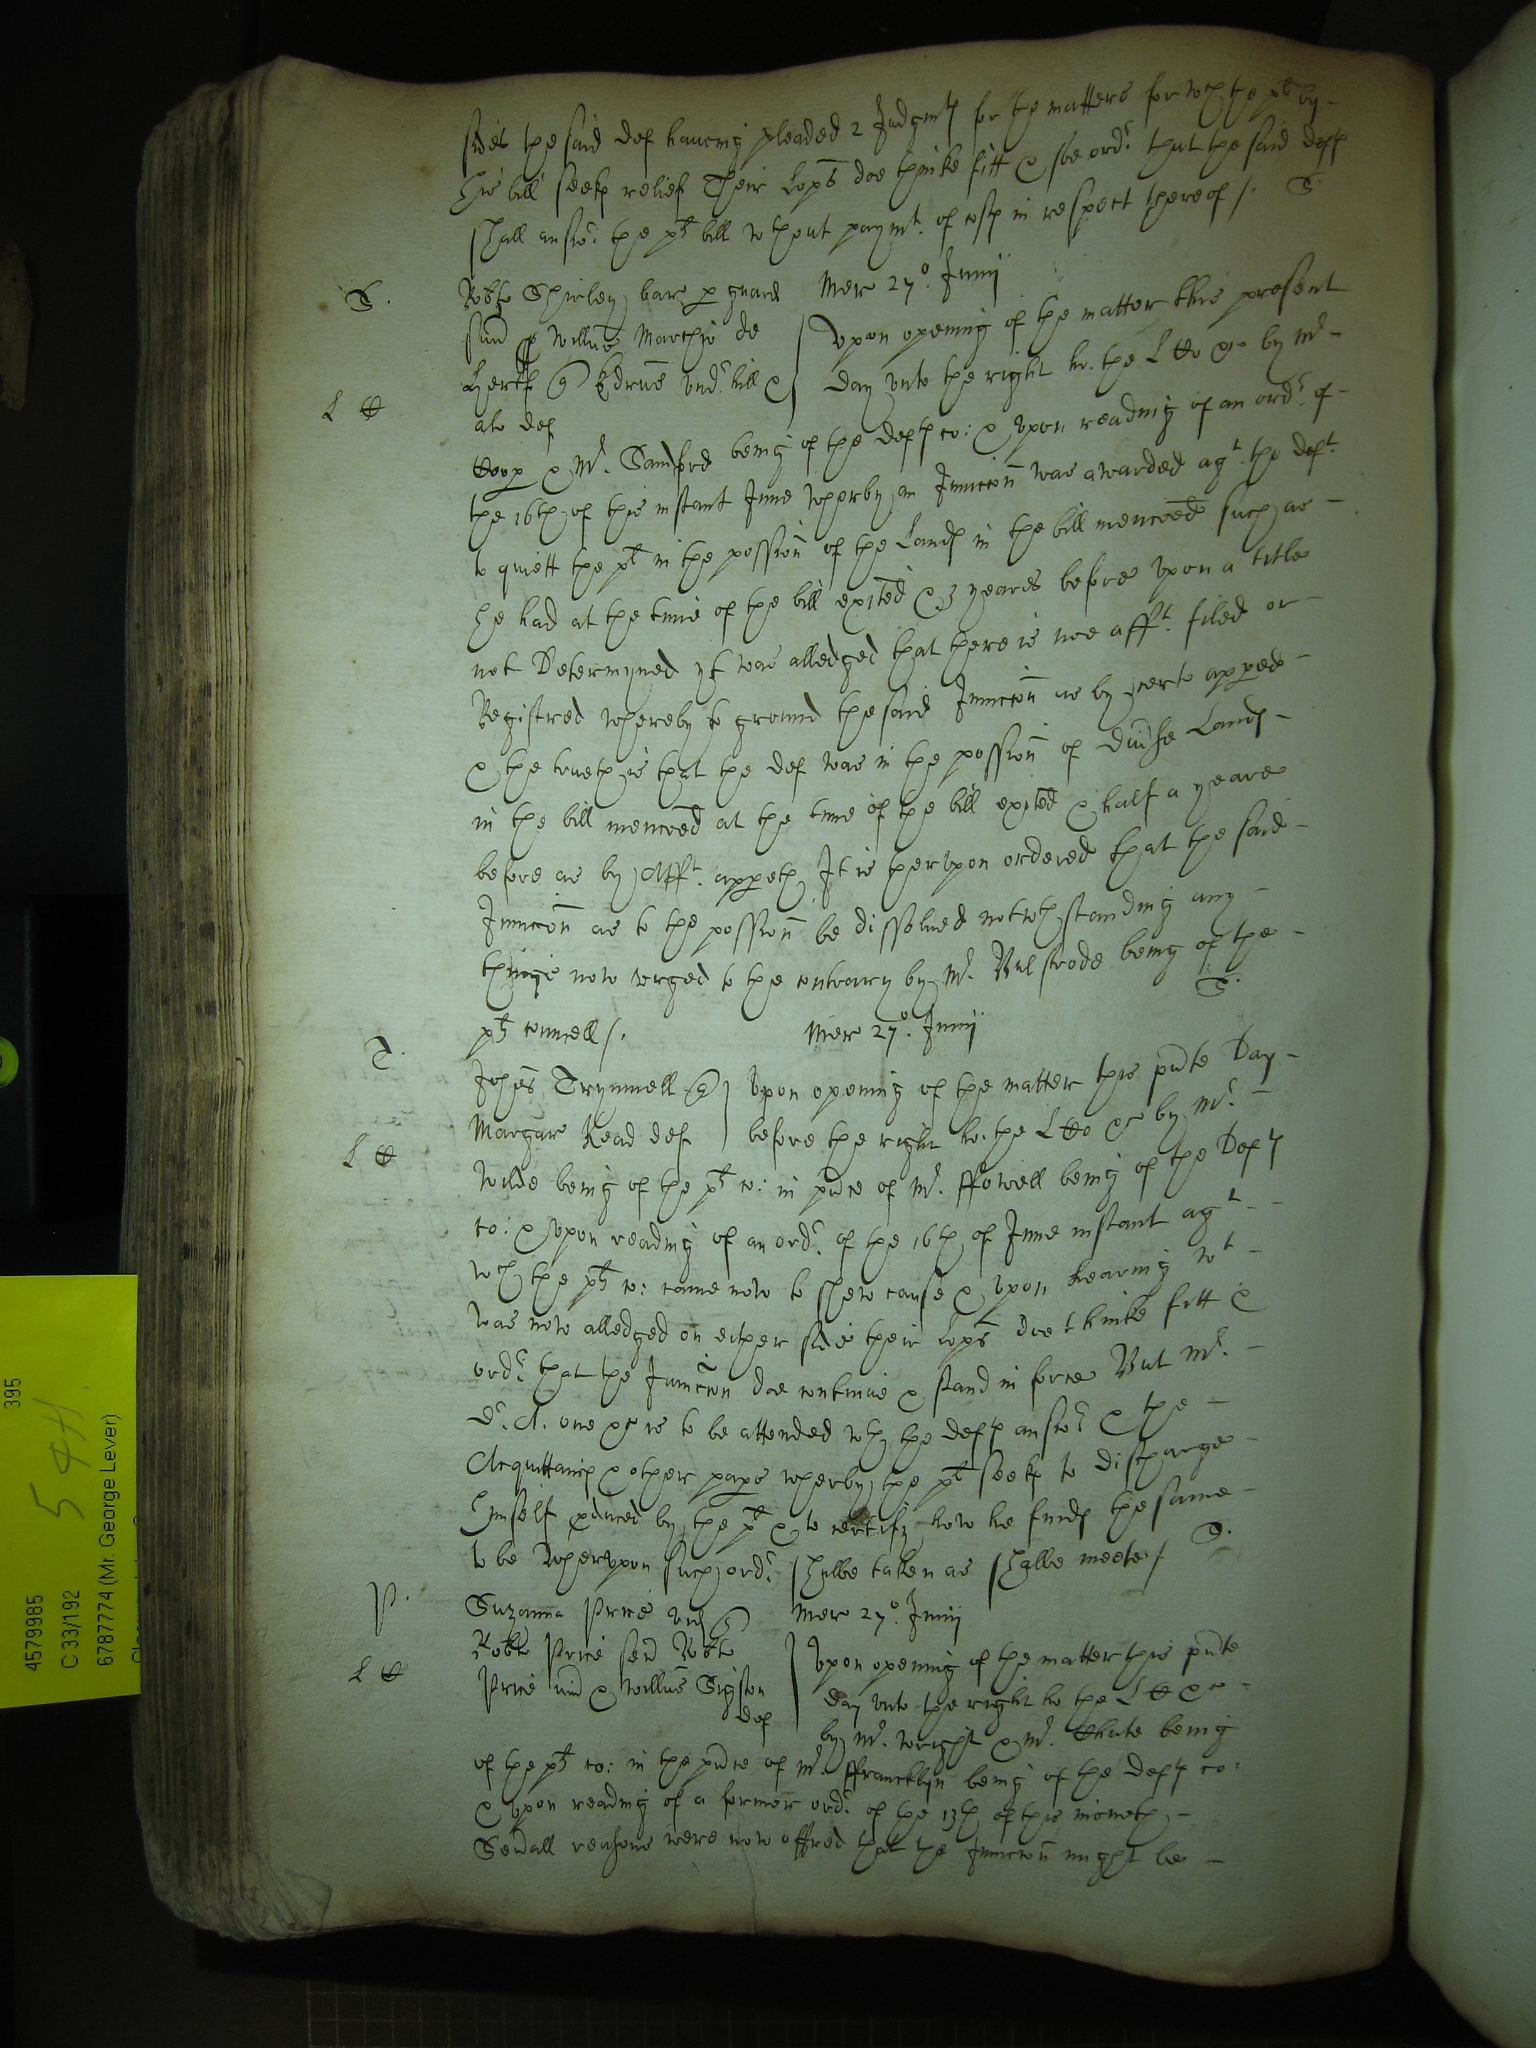 sides the said def haueing pleaded 2 Judgmts for the matters for wch the plt by
his bill seeks relief Their Lopps doe thinke fitt & soe ordr. that the said defts
shall answr. the plts bill wthout paymt. of costs in respect thereof /. S
S. Robte Shirley bart p guard Mer 27o. Junij
sun & Willms Marchio de
Upon opening of the matter this present
Hertf Q Edrus Und.hill &
day unto the right ho. the L Co &c by Mr
L C
als def
& Mr. Samford being of the defts co: & upon reading of an ordr. of
the 16th of this instant June wherby an Iniuccon was awarded agt. the deft.
to quiett the plt in the possion of the Lands in the bill menconed such as
he had at the time of the bill exited & 3 yeares before upon a title
not Determyned yt was alledged that there is noe afft. filed or
Registred whereby to ground the said Iniuccon as by certe apped
& the trueth is that the def was in the possion of diuse Lands
in the bill menconed at the time of the bill exited & half a yeare
before as by Afft. appeth It is therupon ordered that the said
Iniuccon as to the possion be dissolued notwthstanding any
thinge now urged to the contrary by Mr. Bulstrode being of the
plts councell /. S.
T. Mer 27o. Junij
Johes Trymnell Q Upon opening of the matter this pnte Day
Margar Read def before the right ho. the L Co &c by Mr.
L C
Wilde being of the plts co: in pnce of Mr. ffowell being of the Defts
co: & upon reading of an ordr. of the 16th of June instant agt
wch the plts co: came now to shew cause & upon hearing wt
was now alledged on either side their Lopps doe thinke fitt &
ordr. that the Iniuccon doe continue & stand in force But Mr.
Dr. A. one &c is to be attended wth the defts answr & the
Acquittancs & other paps wherby the plt seeks to discharge
himself pduced by the plt & to certify how he finds the same
to be wherupon such ordr. shalbe taken as shalbe meete / S.
P. Suzanna Price vid Q Mer 27o. Junij
Robte Price sen Robte
Upon opening of the matter this pnte
L C
Price iun & Willms Sigston
day unto the right ho the L C &c
def
by Mr. Wright & Mr. Chute being
of the plts co: in the pnce of Mr ffrancklyn being of the defts co:
& upon reading of a former ordr. of the 13th of this moneth
Seuall reasons were now offred that the Iniuccon might be
395
5 44.
4579985
C 33/192
6787774 (Mr. George Lever)